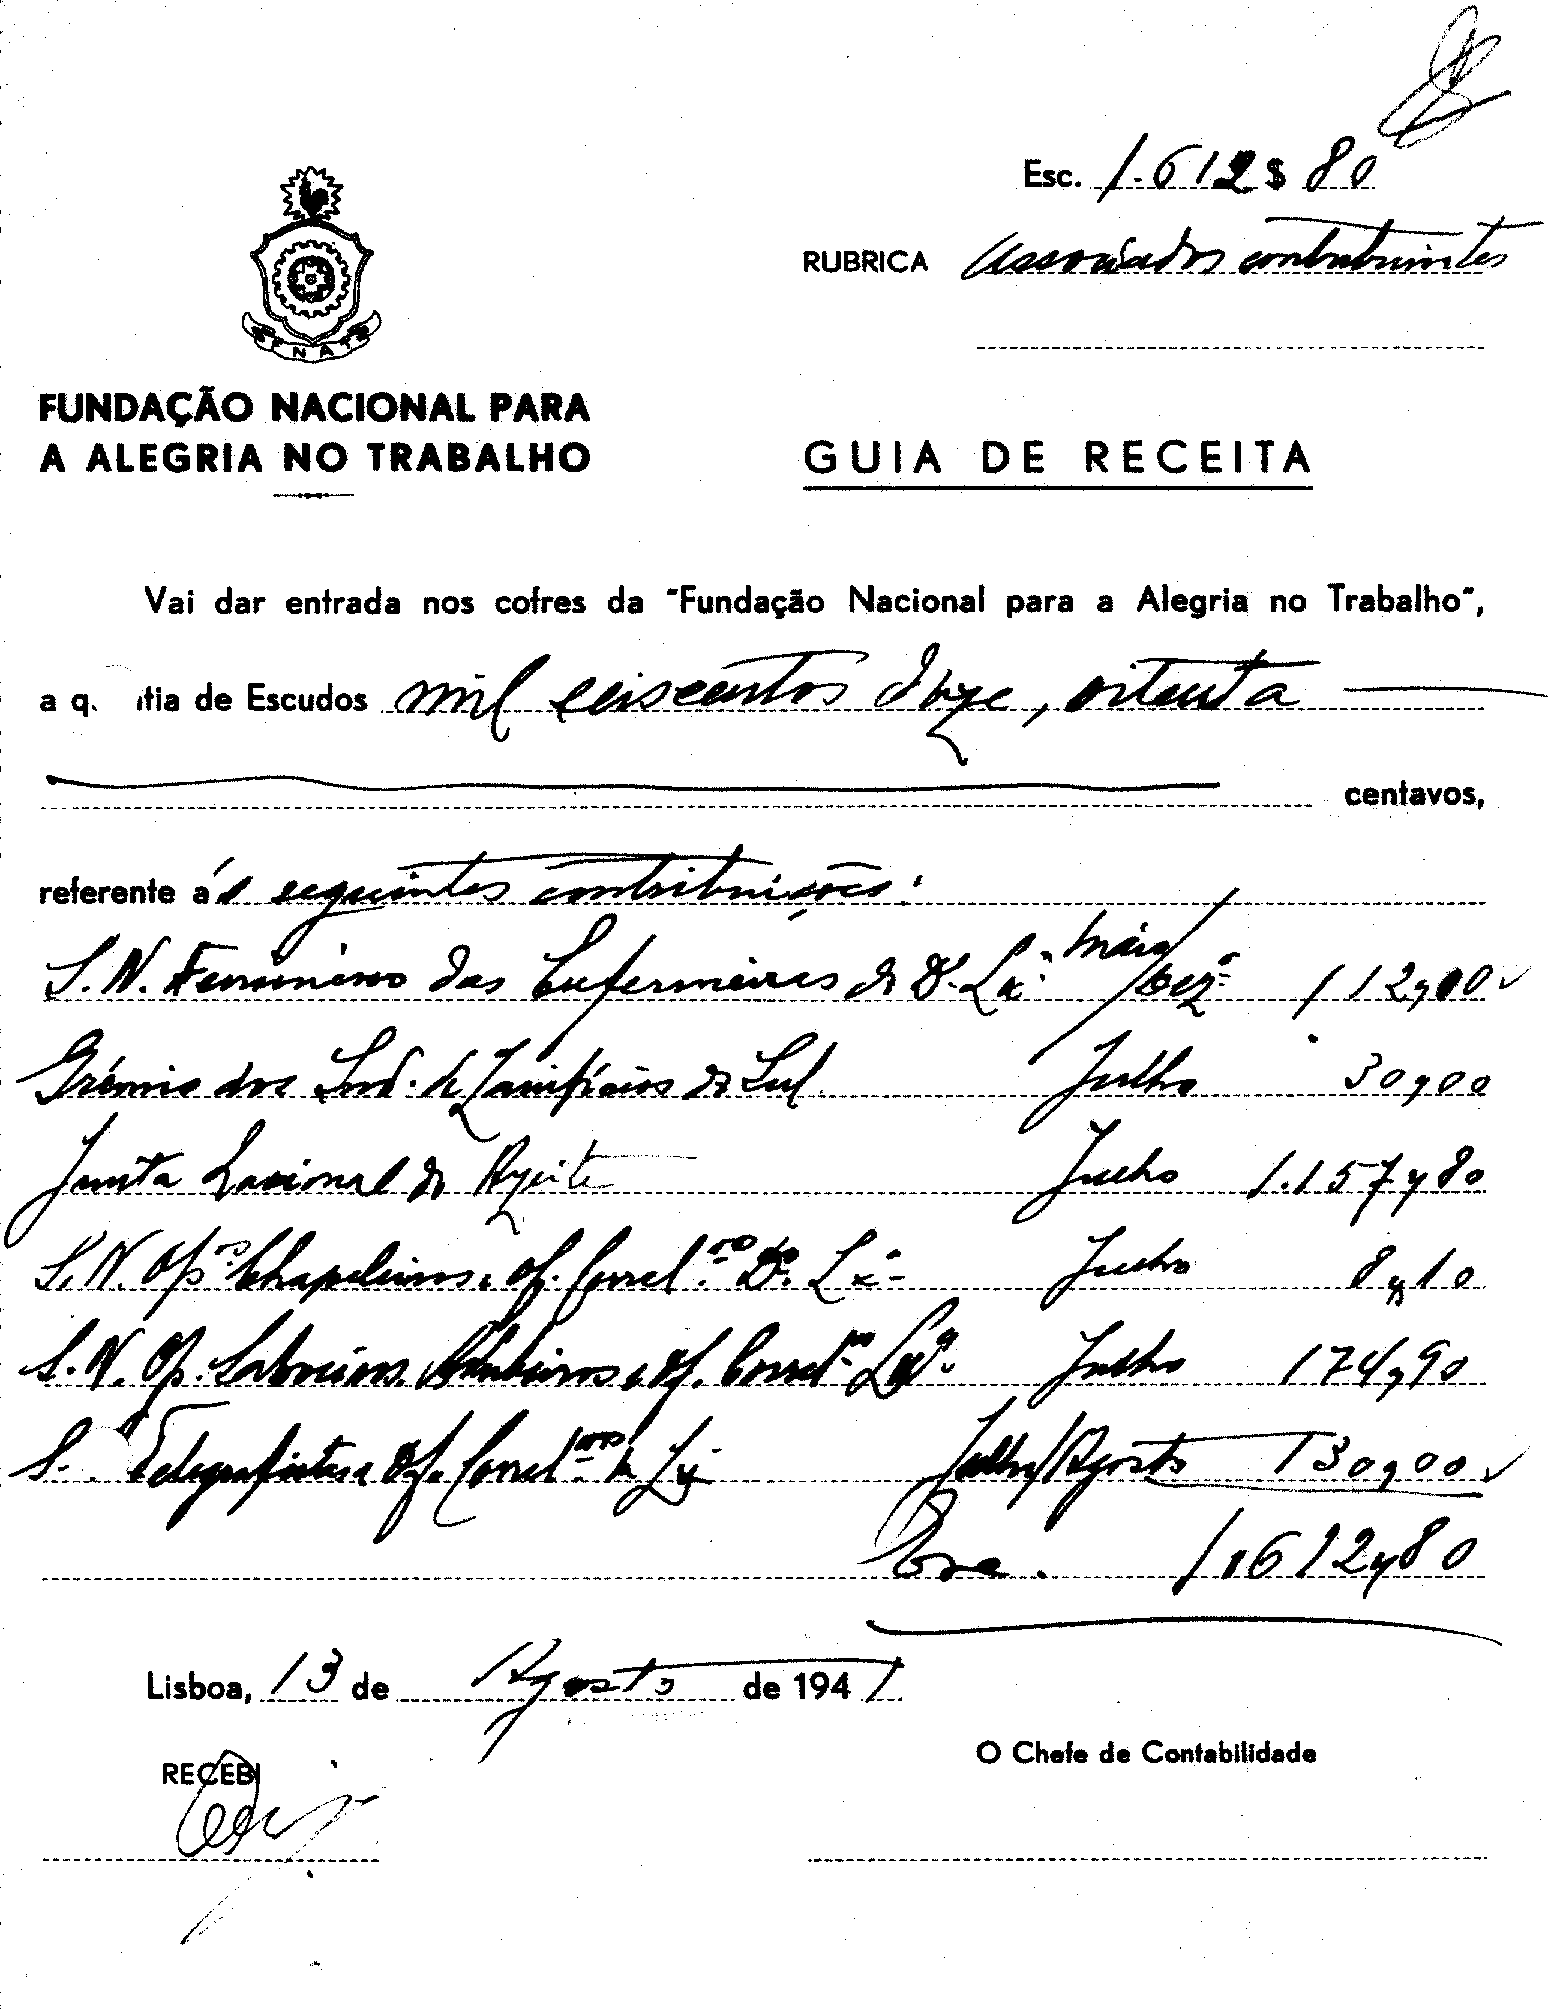 Esc. 1.612$80
RUBRICA Associados contribuintes
FNAT
FUNDAÇÃO NACIONAL PARA
A ALEGRIA NO TRABALHO
GUIA DE RECEITA
Vai dar entrada nos cofres da "Fundação Nacional para a Alegria no Trabalho",
a q. ntia de Escudos mil seiscentos doze, oitenta
centavos,
referente ás seguintes contribuições:
S.N. Feminino das Enfermeiras do D. Lxª Maio/Dezº 112,00
Grémio dos Ind. de Lanifícios do Sul Julho 30,00
Junta Nacional do Azeite Julho 1.157,80
S.N. Opºs Chapeleiros e Of. Correl.ºs D.º Lxª Julho 8,10
S.N. Op. e Of. Correl.ºs Lxª Julho 174,90
S. Telegrafistas e Of. Correl.ºs de Lx Julho/Agosto 130,00
Esc. 1.612,80
Lisboa, 13 de Agosto de 1941
RECEBI
O Chefe de Contabilidade